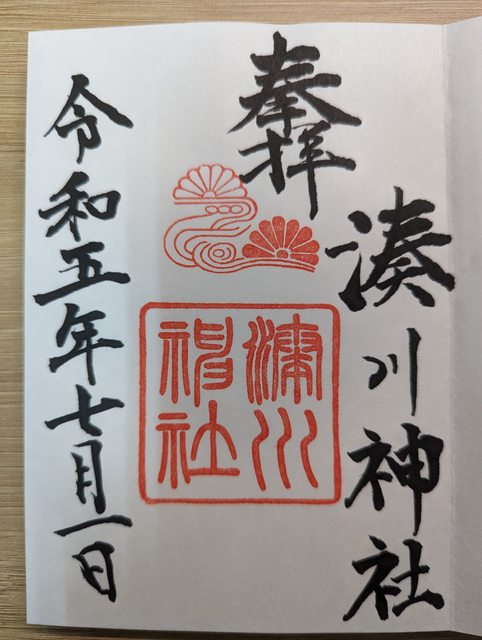 奉拝
湊川神社
湊川神社
令和五年七月一日